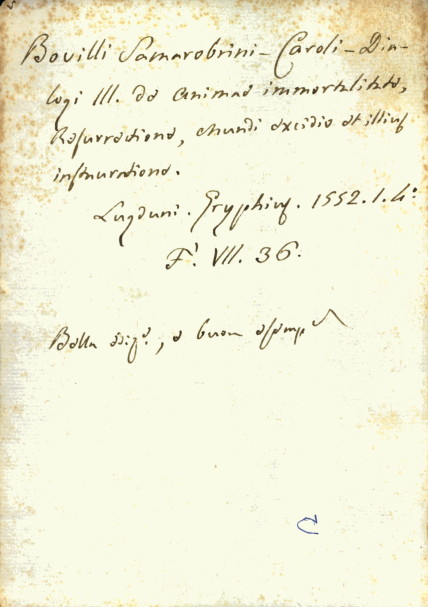 Bovilli Samarobrini - Caroli - Dia-
logi III. de Animae immortalitate,
Resurrectione, Mundi excidio et illius
instauratione.
Lugduni. Gryphius. 1552. 1. 4º
F. VII. 36.
Bella ediz.e, e buon esemp
C